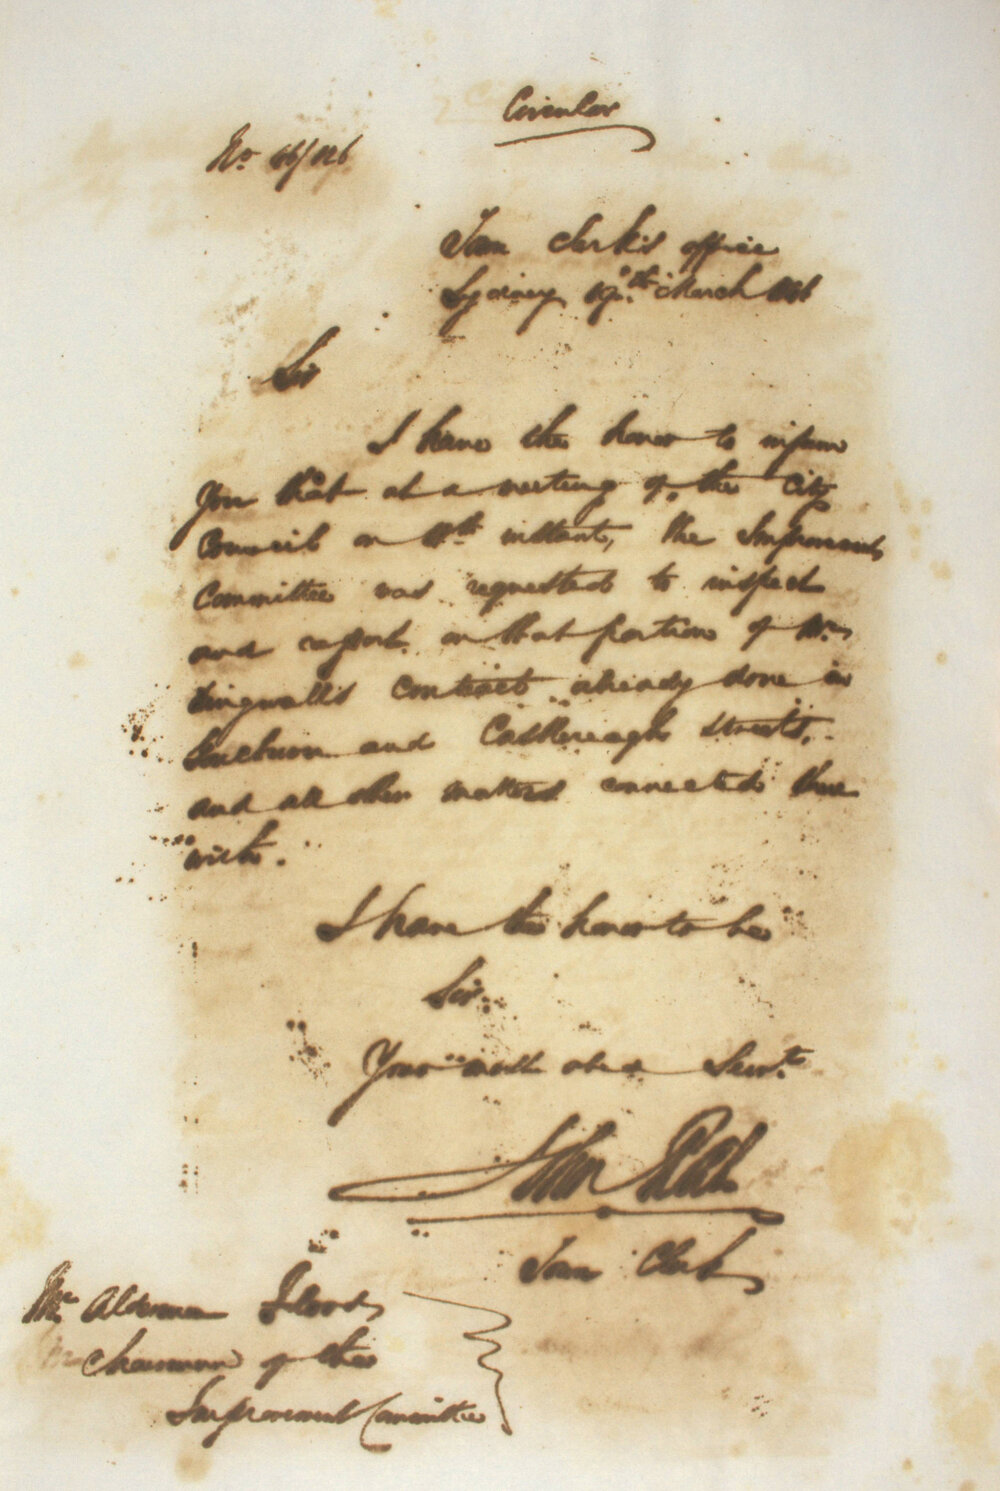 Circular
No. 46/126
Town Clerk's office
Sydney 19th March 1846
Sir
I have the honor to inform
you that at a meeting of the City
Council on instant, the Improvement
Committee was requested to inspect
and report on that portion of Mr
Dingwall's contract already done in
Goulburn and Castlereagh Streets,
and all other matters connected there
with.
I have the honor to be
Sir
Your most obed Servt
John
Town Clerk
Mr Alderman Flood
Chairman of the
Improvement Committee